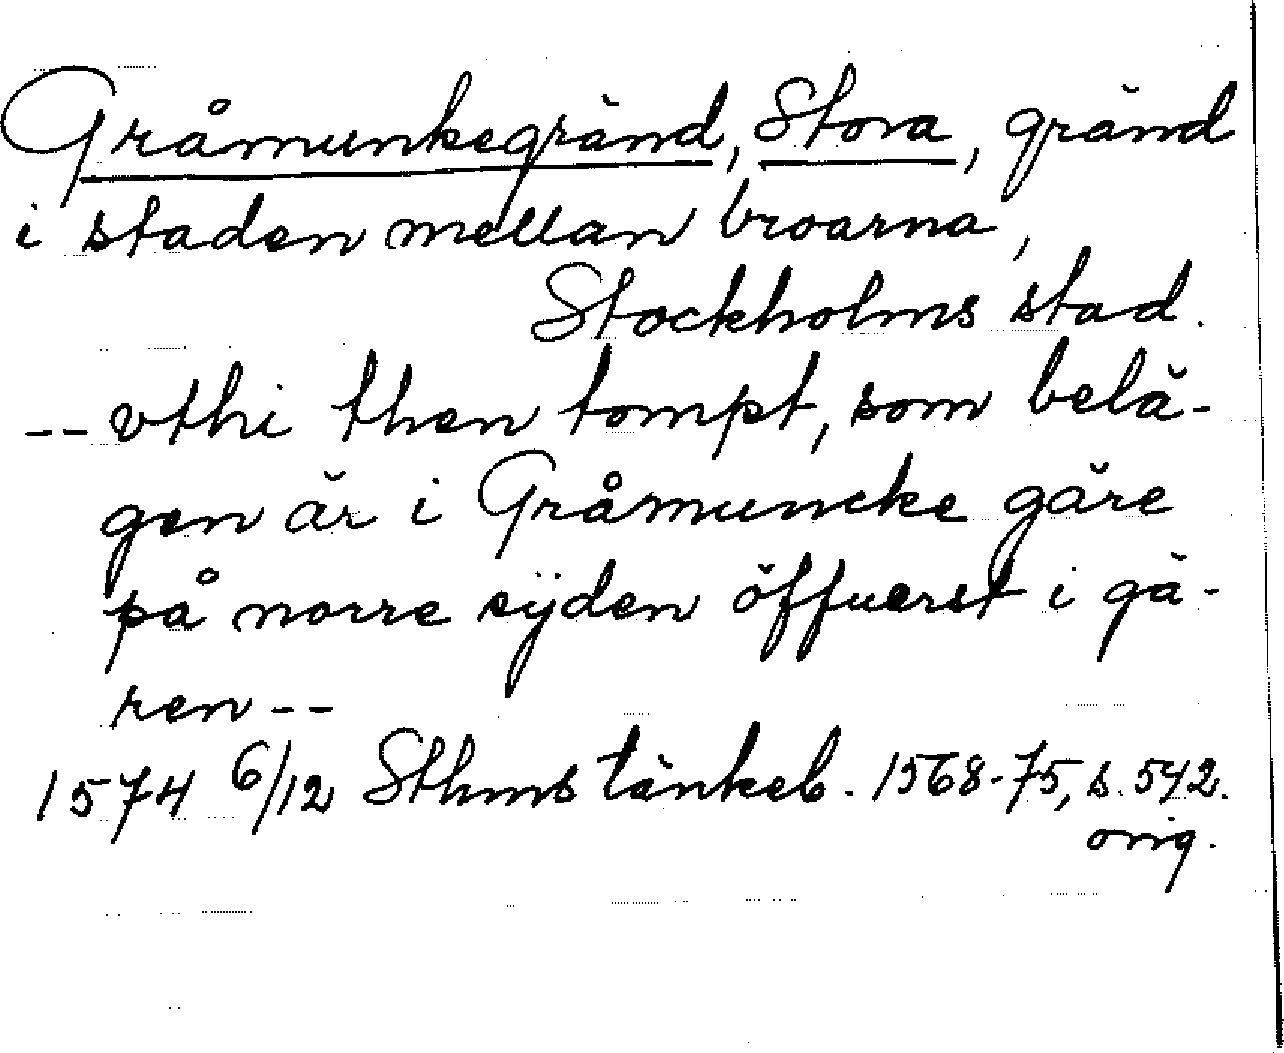 Gråmunkegränd, Stora, gränd
i staden mellan broarna,
Stockholms stad.
-- vthi then tompt, som belä-
gen är i Gråmuncke gäre
på norre sÿden öffuerst i gä-
ren --
1574 6/12 Sthms tänkeb. 1568-75, s. 542.
orig.